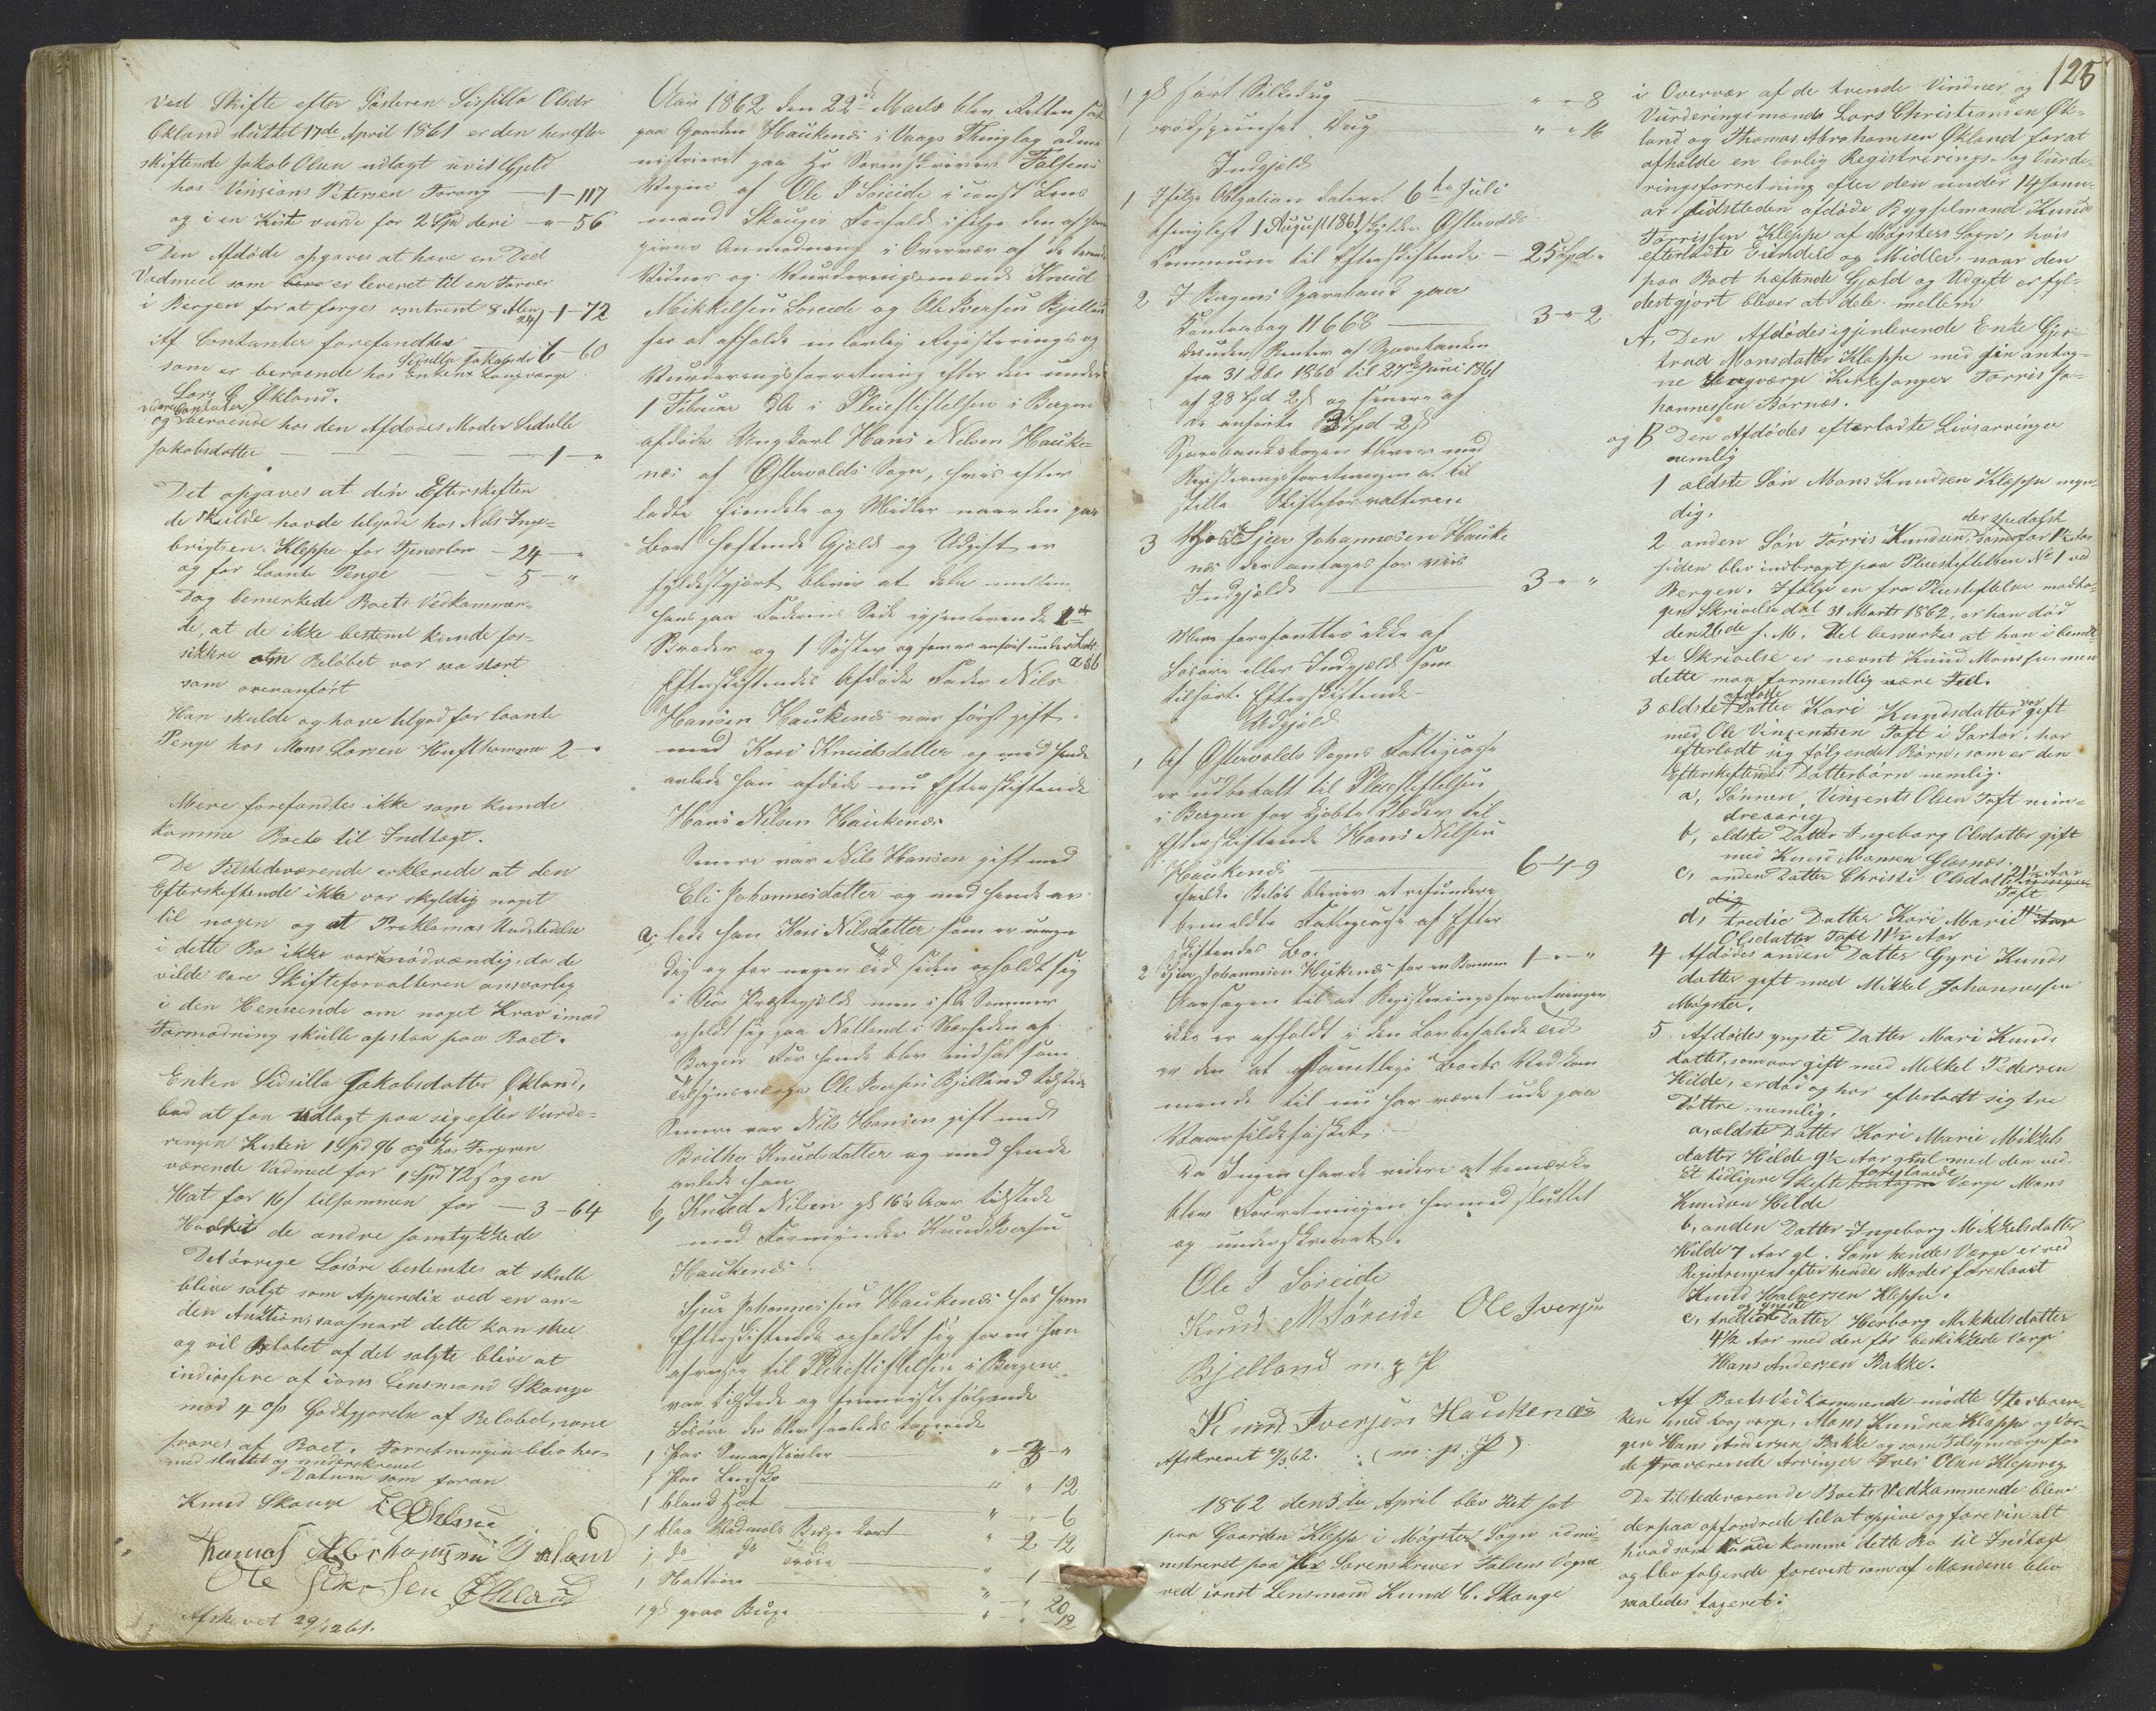 Ved Skifte efter Søsteren Sissilla Olsdr
Økland sluttet 17de April 1861 er den herefter
skiftende Jakob Olsen udlagt uvis Gjeld
hos Vinsians Petersen Torang — 1 — 117
og i en Kiste vurd. for 2 Spd deri — " — 56
Den Afdøde opgaves at have en Deel
Vadmeel som er leveret til en Farver
i Bergen for at farges omtrent 8 Alen 24/ — 1 — 72
Af Contanter forefandtes — 6 — 60
som er beroende hos Enken Sidsilla Jakobsdr Laugværge
Lars C Økland.
videre Contanter
og beroende hos den Afdødes Moder Sidsille
Jakobsdatter — 1 — "
Det opgaves at den Efterskiften
de skulde havde tilgode hos Nils Inge-
brigtsen Kleppe for Tjenerløn — 24 — "
og for laante Penge — 5 — "
Dog bemerkede Boets Vedkommen-
de, at de ikke bestemt kunde for-
sikkre om Beløbet var saa stort
som ovenanført
Han skulde og have tilgod for laante
Penge hos Mons Larsen Hufthammer 2 — "
Mere forefandtes ikke som kunde
komme Boets til Indtægt.
De Tilstedeværende erklærede at den
Efterskiftende ikke var skyldig noget
til nogen og at Proklamas Udstedelse
i dette Bo ikke var nødvændig, da de
vilde være Skifteforvalteren ansvarlig
i den Henseende om noget Krav imod
Formodning skulle opstaa paa Boet.
Enken Sidsilla Jakobsdatter Økland,
bad at faa Udlagt paa sig efter Vurde-
ringen Kisten 1 Spd 96 og det hos Farveren
værende Vadmel for 1 Spd 72 s og en
Hat for 16/ tilsammen for — 3 — 64
Hvilket de andre samtykkede
Det øvrige Løsøre bestemtes at skulle
blive solgt som Appendix ved en an-
den Auktion, saasnart dette kan skee
og vil Beløbet af det solgte blive at
indcassere af const Lensmand Skauge
mod 4 o/o Godtgjørelse af Beløbet, som
svares af Boet. Forretningen blev her-
med sluttet og underskrevet
Datum som foran
Knud Skauge
Thomas Abrhamsen Økland
Ole Pedersen Økland
Afskrevet 29/12 61.
Aar 1862 den 22de Marts blev Retten sat
paa Gaarden Haukenæs i Vaags Thinglag admi
nistreret paa Hr Sorenskriver Falsens
Vegne af Ole P Søreide i const Lens
mand Skauges Forfald ifølge den af ham
givne Anmodning i Overvær af de tvende
Vidner og Vurderingsmænd Knud
Mikkelsen Søreide og Ole Iversen Bjelland
for at afholde en lovlig Registrerings og
Vurderingsforretning efter den under
1 Februar d A i Pleiestiftelsen i Bergen
afdøde Ungkarl Hans Nilsen Hauke
næs af Østervolds Sogn, hvis efter
ladte Eiendele og Midler naar den paa
Boet heftende Gjæld og Udgift er
fyldestgjort bliver at dele mellem
hans paa Faderens Side igjenlevende
Broder og 1 Søster og som er anført under
Efterskiftendes Afdøde Fader Nils
Hansen Haukenæs var først gift
med Kari Knudsdatter og med hende
avlede han afdøde nu Efterskiftende
Hans Nilsen Haukenæs
Senere var Nils Hansen gift med
Eli Johannesdatter og med hende av
a, lede han Kari Nilsdatter som er myn
dig og for nogen tid siden opholdt sig
i Præstegjeld men i fle Sommer
opholdt sig paa Natland i Nærheden af
Bergen For hende blev indsat som
Tilsynsværge Ole Iversen Bjelland tilstede
Senere var Nils Hansen gift med
Britha Knudsdatter og med hende
avlede han
b, Knud Nilsen gl 16 1/2 Aar tilstede
med Formynder Knud Iversen
Haukenæs.
Sjur Johannessen Haukenæs hos hvem
Efterskiftende opholdt sig førend han
afreiste til Pleiestiftelsen i Bergen
var tilstede og fremviste følgende
Løsøre der blev saaledes taxerede
1 Par Smaastøvler
1 Par " " 12
1 blank Hat " " 6
1 blaa Vadmels Buxe " 2 12
1 do do Trøie
1 " 1
1 gl graa Buxe " " 12
1 gl sort Silkedug " " 8
1 rødsprenget Dug " " 16
Indgjæld
1 Ifølge Obligation dateret 6te Juli
thinglæst 1 August 1861 skylder Østervolds
Commune til Efterskiftende — 25 Spd "
2 I Bergens Sparebank paa
Contrabog 11668 — 3 " 2
desuden Renter af Sparebanken
fra 31 Dbr 1860 til 21de Juni 1861
af 28 spd 2 s og senere af
de anførte 3 Spd 2 s
Sparebanksbogen bliver med
Registreringsforretningen at til
stille Skifteforvalteren
3 Hos Sjur Johannesen Hauke
næs der antages for vis
Indgjæld — 3 " "
Mere forefandtes ikke af
Løsøre eller Indgjæld som
tilhørte Efterskiftende
Udgjæld
1 Af Østervolds Sogns Fattigcasse
er udbetalt til Pleiestiftelsen
i Bergen for kjøbte Klæder til
Efterskiftende Hans Nilsen
Haukenæs — 6 4 9
hvilke Beløb bliver at refundere
bemeldte Fattigcasse af Efter
skiftendes Bo.
2 Sjur Johannesen Haukenæs for en Komme 1 " "
Aarsagen til at Registreringsforretningen
ikke er afholdt i den Lovbefalede tid
er den at samtlige Boets Vedkom
mende til nu har været ude paa
Vaarsildfisket
Da Ingen havde videre at bemærke
blev Forretningen hermed sluttet
og underskrevet.
Ole P Søreide
Knud M Søreide Ole Iversen
Bjelland m. p. P
Knud Iversen Haukenæs
Afskrevet 29/3 62. (m. p. P)
1862 den 3die April blev Ret sat
paa Gaarden Kleppe i Møgster Sogn admi-
nistreret paa Hr Sorenskriver Falsens Vegne
ved const Lensmand Knud C. Skauge
125
i Overvær af de tvende Vindner og
Vurderingsmænd Lars Christiansen Øk-
land og Thomas Abrahamsen Økland for at
afholde en lovlig Registrerings- og Vurde-
ringsforretning efter den under 14 Janu-
ar sidstleden afdøde Bygselmand Knud
Tørrissen Kleppe af Møgsters Sogn, hvis
efterladte Eiendele og Midler, naar den
paa Boet hæftende Gjæld og Udgift er fyl-
destgjort bliver at dele mellem
A, Den Afdødes igjenlevende Enke Gjer-
trud Monsdatter Kleppe med sin antag-
ne Laugværge Kirkesanger Tørris Jo-
hannessen Børnæs.
og B Den Afdødes efterladte Livsarvinger
nemlig
1 ældste Søn Mons Knudsen Kleppe myn
dig.
2 anden Søn Tørris Knudsen, der spedalsk som for 1 1/2 Aar
siden blev indbragt paa Pleiestiftelsen No 1 ved
Bergen. Ifølge en fra Pleiestiftelse modta-
gen Skrivelse dat 31 Marts 1862, er han død
den 26de s. M. Det bemerkes at han i bemeld-
te Skrivelse er nævnt Knud Monssen, men
dette maa formentlig være Feil.
3 ældste afdøde Datter Kari Knudsdatter var gift
med Ole Vinsentsen Toft i Sartor. har
efterladt sig følgende Børn, som er den
Efterskiftendes Datterbørn nemlig.
a, Sønnen, Vinsents Olsen Toft min-
dreaarig
b, ældste Datter Ingeborg Olsdatter gift
med Knud Monsen Glesnæs.
c, anden Datter Christi Olsdatter 21 1/2 Aar
Toft
d, tredie Datter Kari Marie
Olsdatter Toft 11 1/2 Aar
4 Afdødes anden Datter Gyri Knuds
datter gift med Mikkel Johannessen
Møgster.
5 Afdødes yngste Datter Mari Knuds
datter, som var gift med Mikkel Pedersen
Hilde, er død og har efterladt sig tre
Døttre, nemlig.
a, ældste Datter Kari Marie Mikkels
datter Hilde 9 1/2 Aar gml med den ved
et tidligere Skifte foreslaaede Værge Mons
Knudsen Hilde
b, anden Datter Ingeborg Mikkelsdatter
Hilde 7 Aar gl. Som hendes Værge er ved
Registringen efter hendes Moder foreslaaet
Knud Halversen Kleppe.
c, tredie og yngste Datter Herborg Mikkelsdatter
4 1/2 Aar med den før beskikkede Værge
Hans Andersen Bakke.
Af Boets Vedkommende mødte
ken med Laugværge, Mons Knudsen Kleppe og Vær-
gen Hans Andersen Bakke og som Tilsynsværge for
de fraværende Arvinger Iver Olsen Klepsvig
De tilstedeværende Boets Vedkommende bleve
derpaa opfordrede til at opgive og forevise alt
hvad som kunde komme dette Bo til Indtægt
og blev følgende forevist som af Mændene blev
saaledes taxeret: